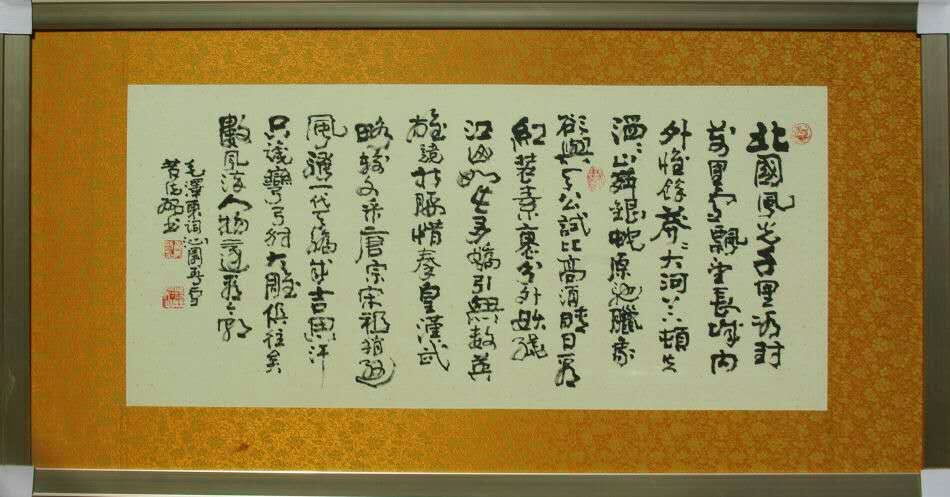 北國風光千里冰封
萬里雪飄望長城內
外惟餘莽〻大河上下頓失
滔〻山舞銀蛇原馳臘象
欲與天公試比高須晴日看
紅裝素裹分外妖嬈
江山如此多嬌引無數英
雄競折腰惜秦皇漢武
略輸文采唐宗宋祖稍遜
風騷一代天驕成吉思汗
只識彎弓射大雕俱往矣
數風流人物還看今朝
毛澤東詞沁園春雪
书